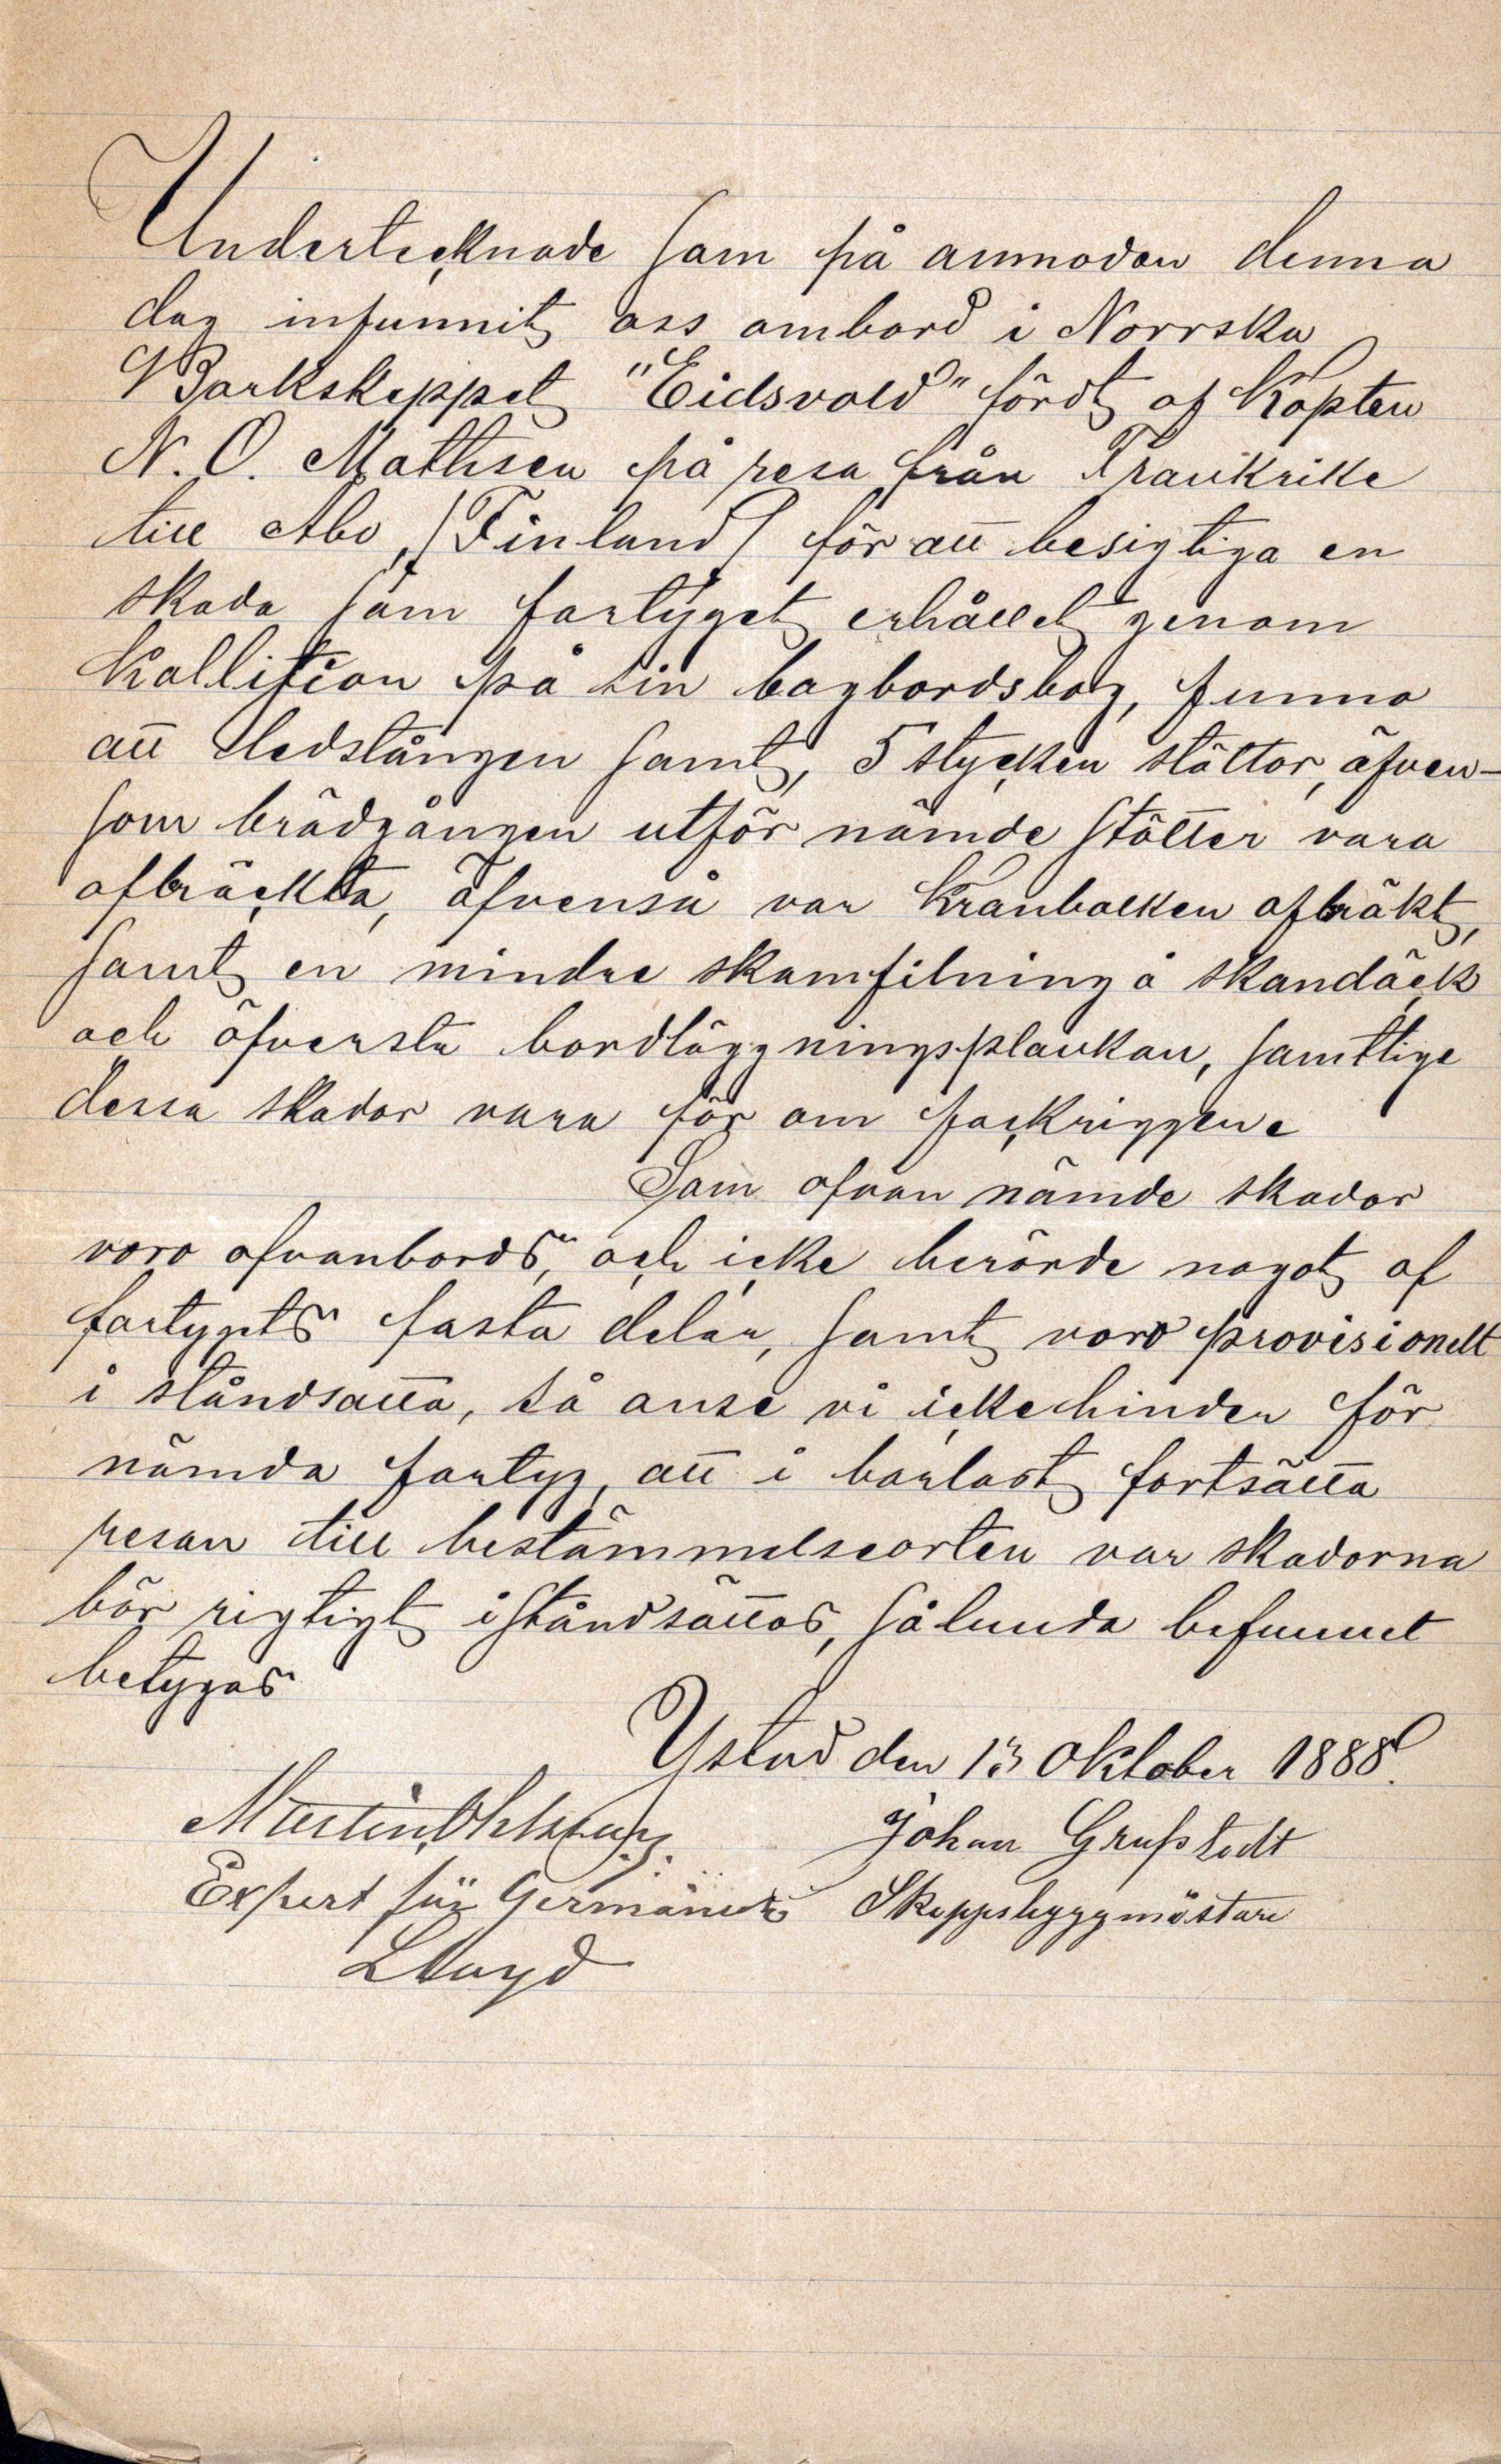 Undertecknade som på anmodan denna
dag infunnit oss ombord i Norrska
Barkskeppet "Eidsvold" fördt af Kapten
N. O. Mathsen på resa från Frankrike
till Abo, (Finland) för att besigtiga en
skada som fartyget erhållet genom
Kollition på sin bagbordsbog, funno
att Ledstången samt, 5 stycken stöttor, äfven-
som brädgången utför nämde stötter vara
afbräckta, äfvenså var Kranbalken afbräkt,
samt en mindre skamfilning å skandäck
och öfversta bordläggningsplankan, samtlige
dessa skador vara för om fockriggen.
Som ofvan nämde skador
voro ofvanbords, och icke berörde nagot af
fartygets fasta delar, samt voro provisionelt
i ståndsatta, så anse vi icke hinder för
nämda fartyg, att i barlast fortsätta
resan till bestämmelseorten var skadorna
bör rigtigt iståndsättas, sålunda befunnet
betygas
Ystad den 13 Oktober 1888.
Martin
Johan Grufstedt
Expert für Germanischer
Skeppsbyggmästare
Lloyd